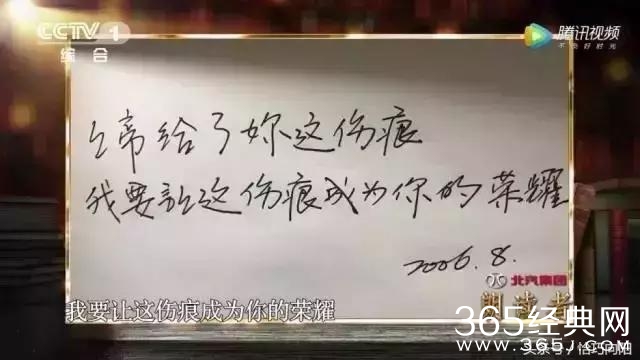 CCTV 1
综合
腾讯视频
不负好时光
上帝给了妳这伤痕
我要让这伤痕成为你的荣耀
2006.8.
北汽集团
朗读者
我要让这伤痕成为你的荣耀
365经典网
www.365j.com
头条号